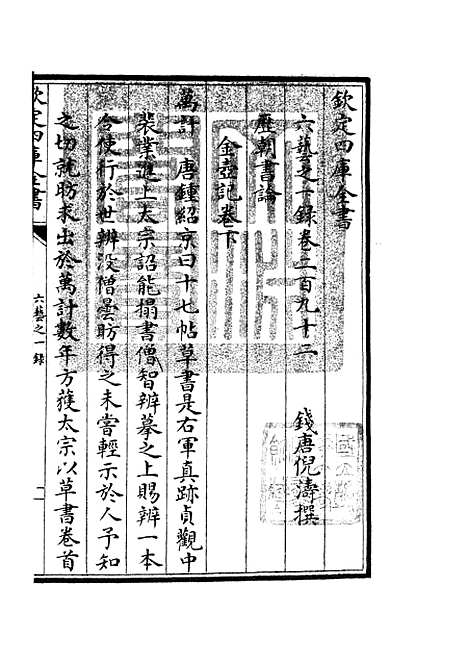 欽定四庫全書
六藝之一錄卷二百九十二
錢唐倪濤撰
歷朝書論
金壺記卷下
萬計 唐鍾紹京曰十七帖草書是右軍真跡貞觀中
裴業進上太宗詔能搨書僧智辨摹之上賜辨一本
令使行於世辨没僧曇昉得之未嘗輕示於人予知
之切就昉求出於萬計數年方獲太宗以草書卷首
欽定四庫全書
六藝之一錄